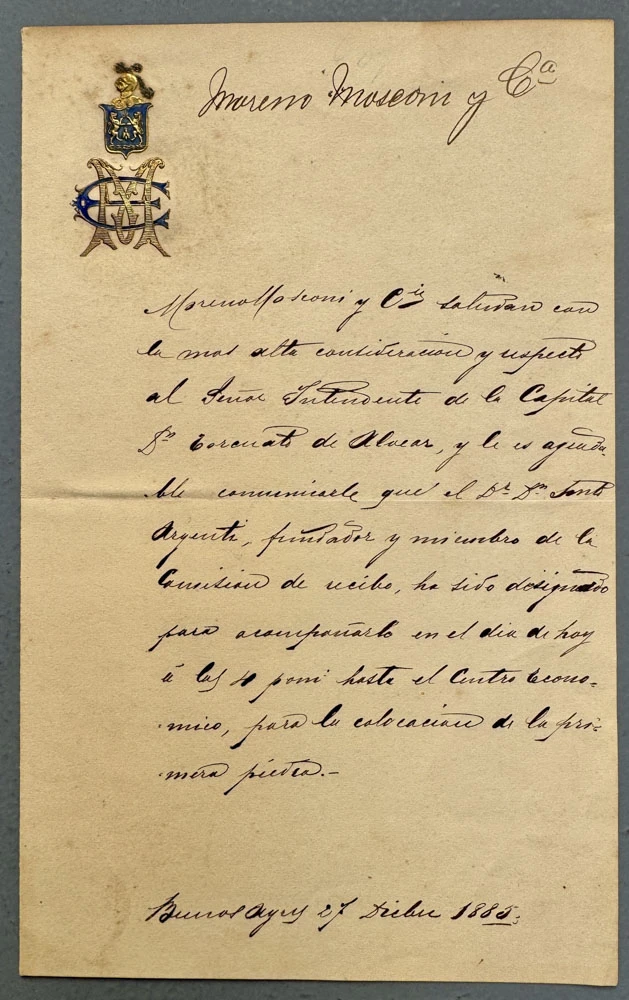 Moreno Mosconi y Cª
Moreno Mosconi y Cia saludan con
la mas alta consideracion y respeto
al Señor Intendente de la Capital
Dn Torcuato de Alvear, y le es agrada
ble comunicarle que el Dr. Dn
Argenti, fundador y miembro de la
Comision de recibo, ha sido designado
para acompañarlo en el dia de hoy
á las 4 pm hasta el Centro Econo-
mico, para la colocacion de la pri-
mera piedra.-
Buenos Ayres 27 Dicbre 1885.